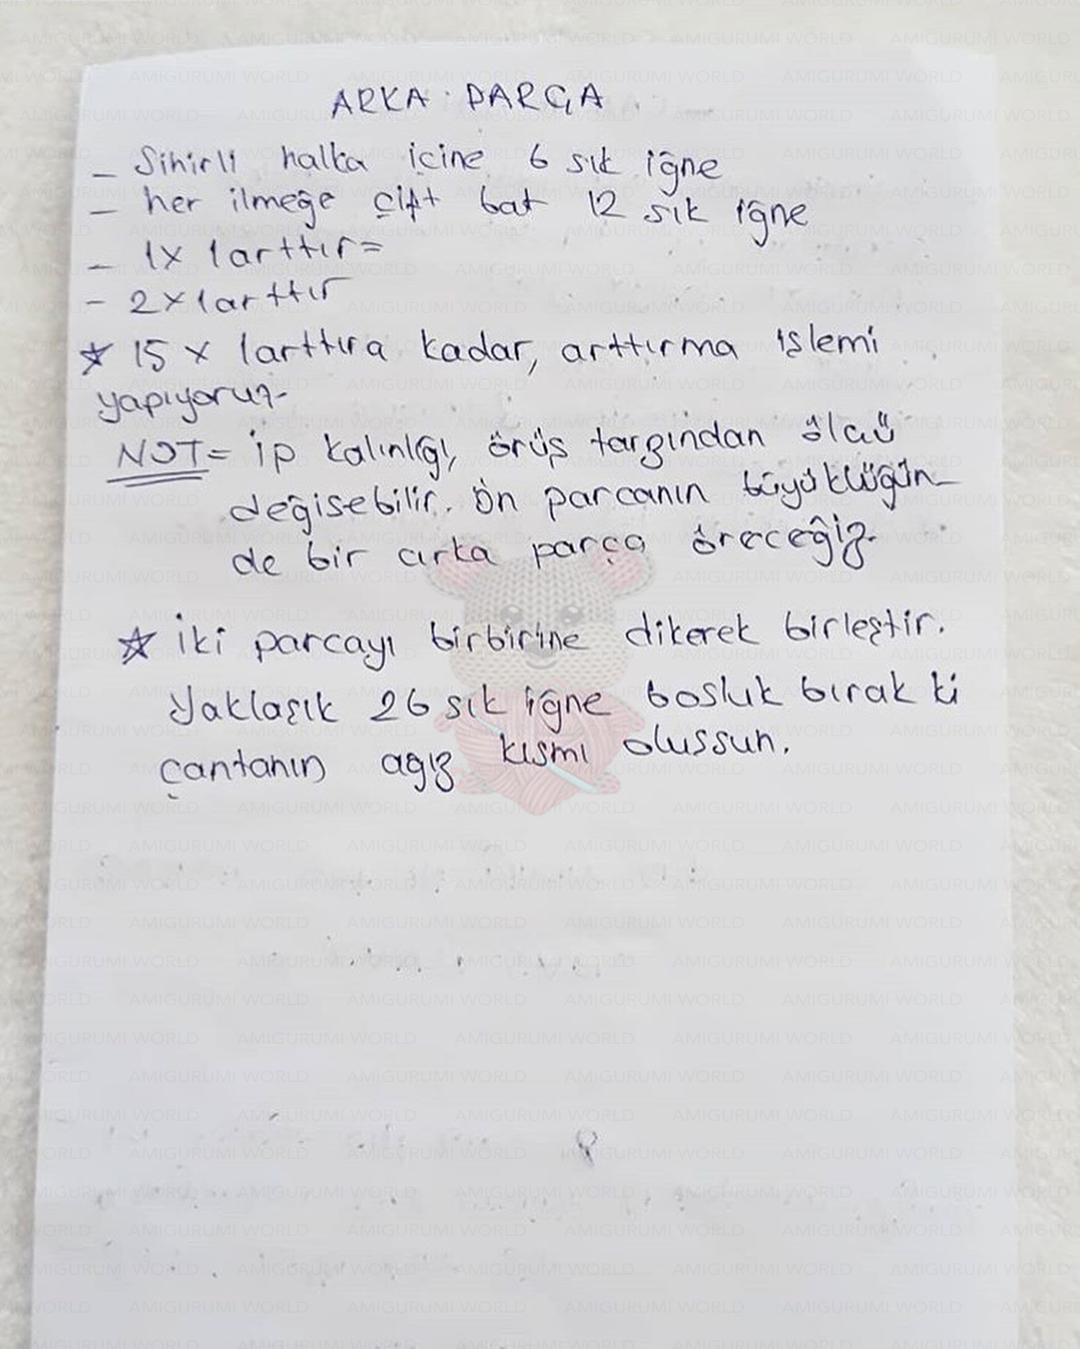 ARKA PARÇA
- Sihirli halka içine 6 sık iğne
- her ilmeğe çift bat 12 sık iğne
- 1x 1arttır=
- 2x1arttır
☆ 15 x 1arttıra kadar, arttırma islemi
yapıyoruz-
NOT= ip kalınlığı, örüş tarzından ölçü
değisebilir. Ön parcanın büyüklüğün-
de bir arka parça öreceğiz.
☆ İki parcayı birbirine dikerek birleştir.
Yaklaşık 26 sık iğne bosluk bırak ki
çantanın agız kısmı olussun.
AMIGURUMI WORLD